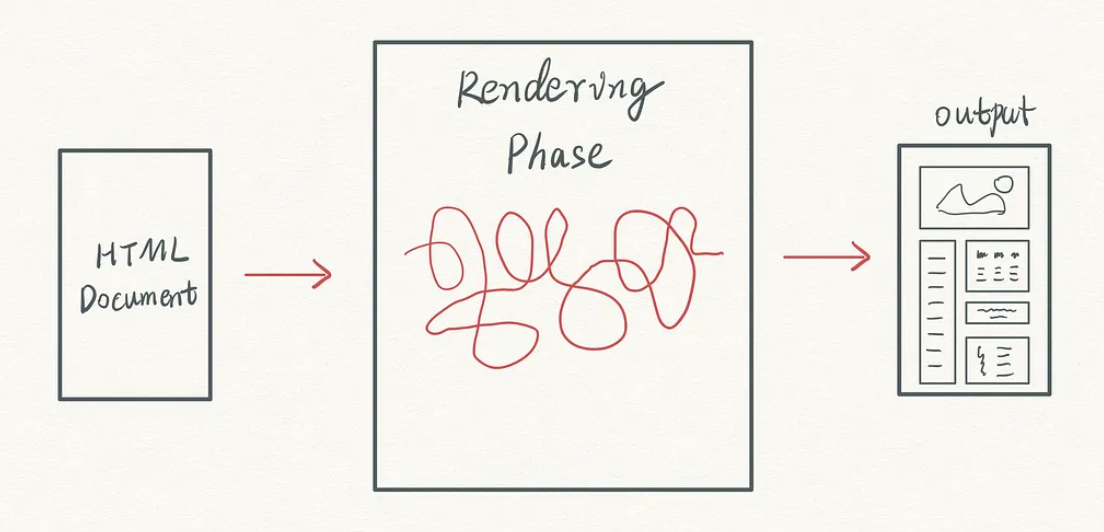 HTML
Document
Rendering
Phase
output